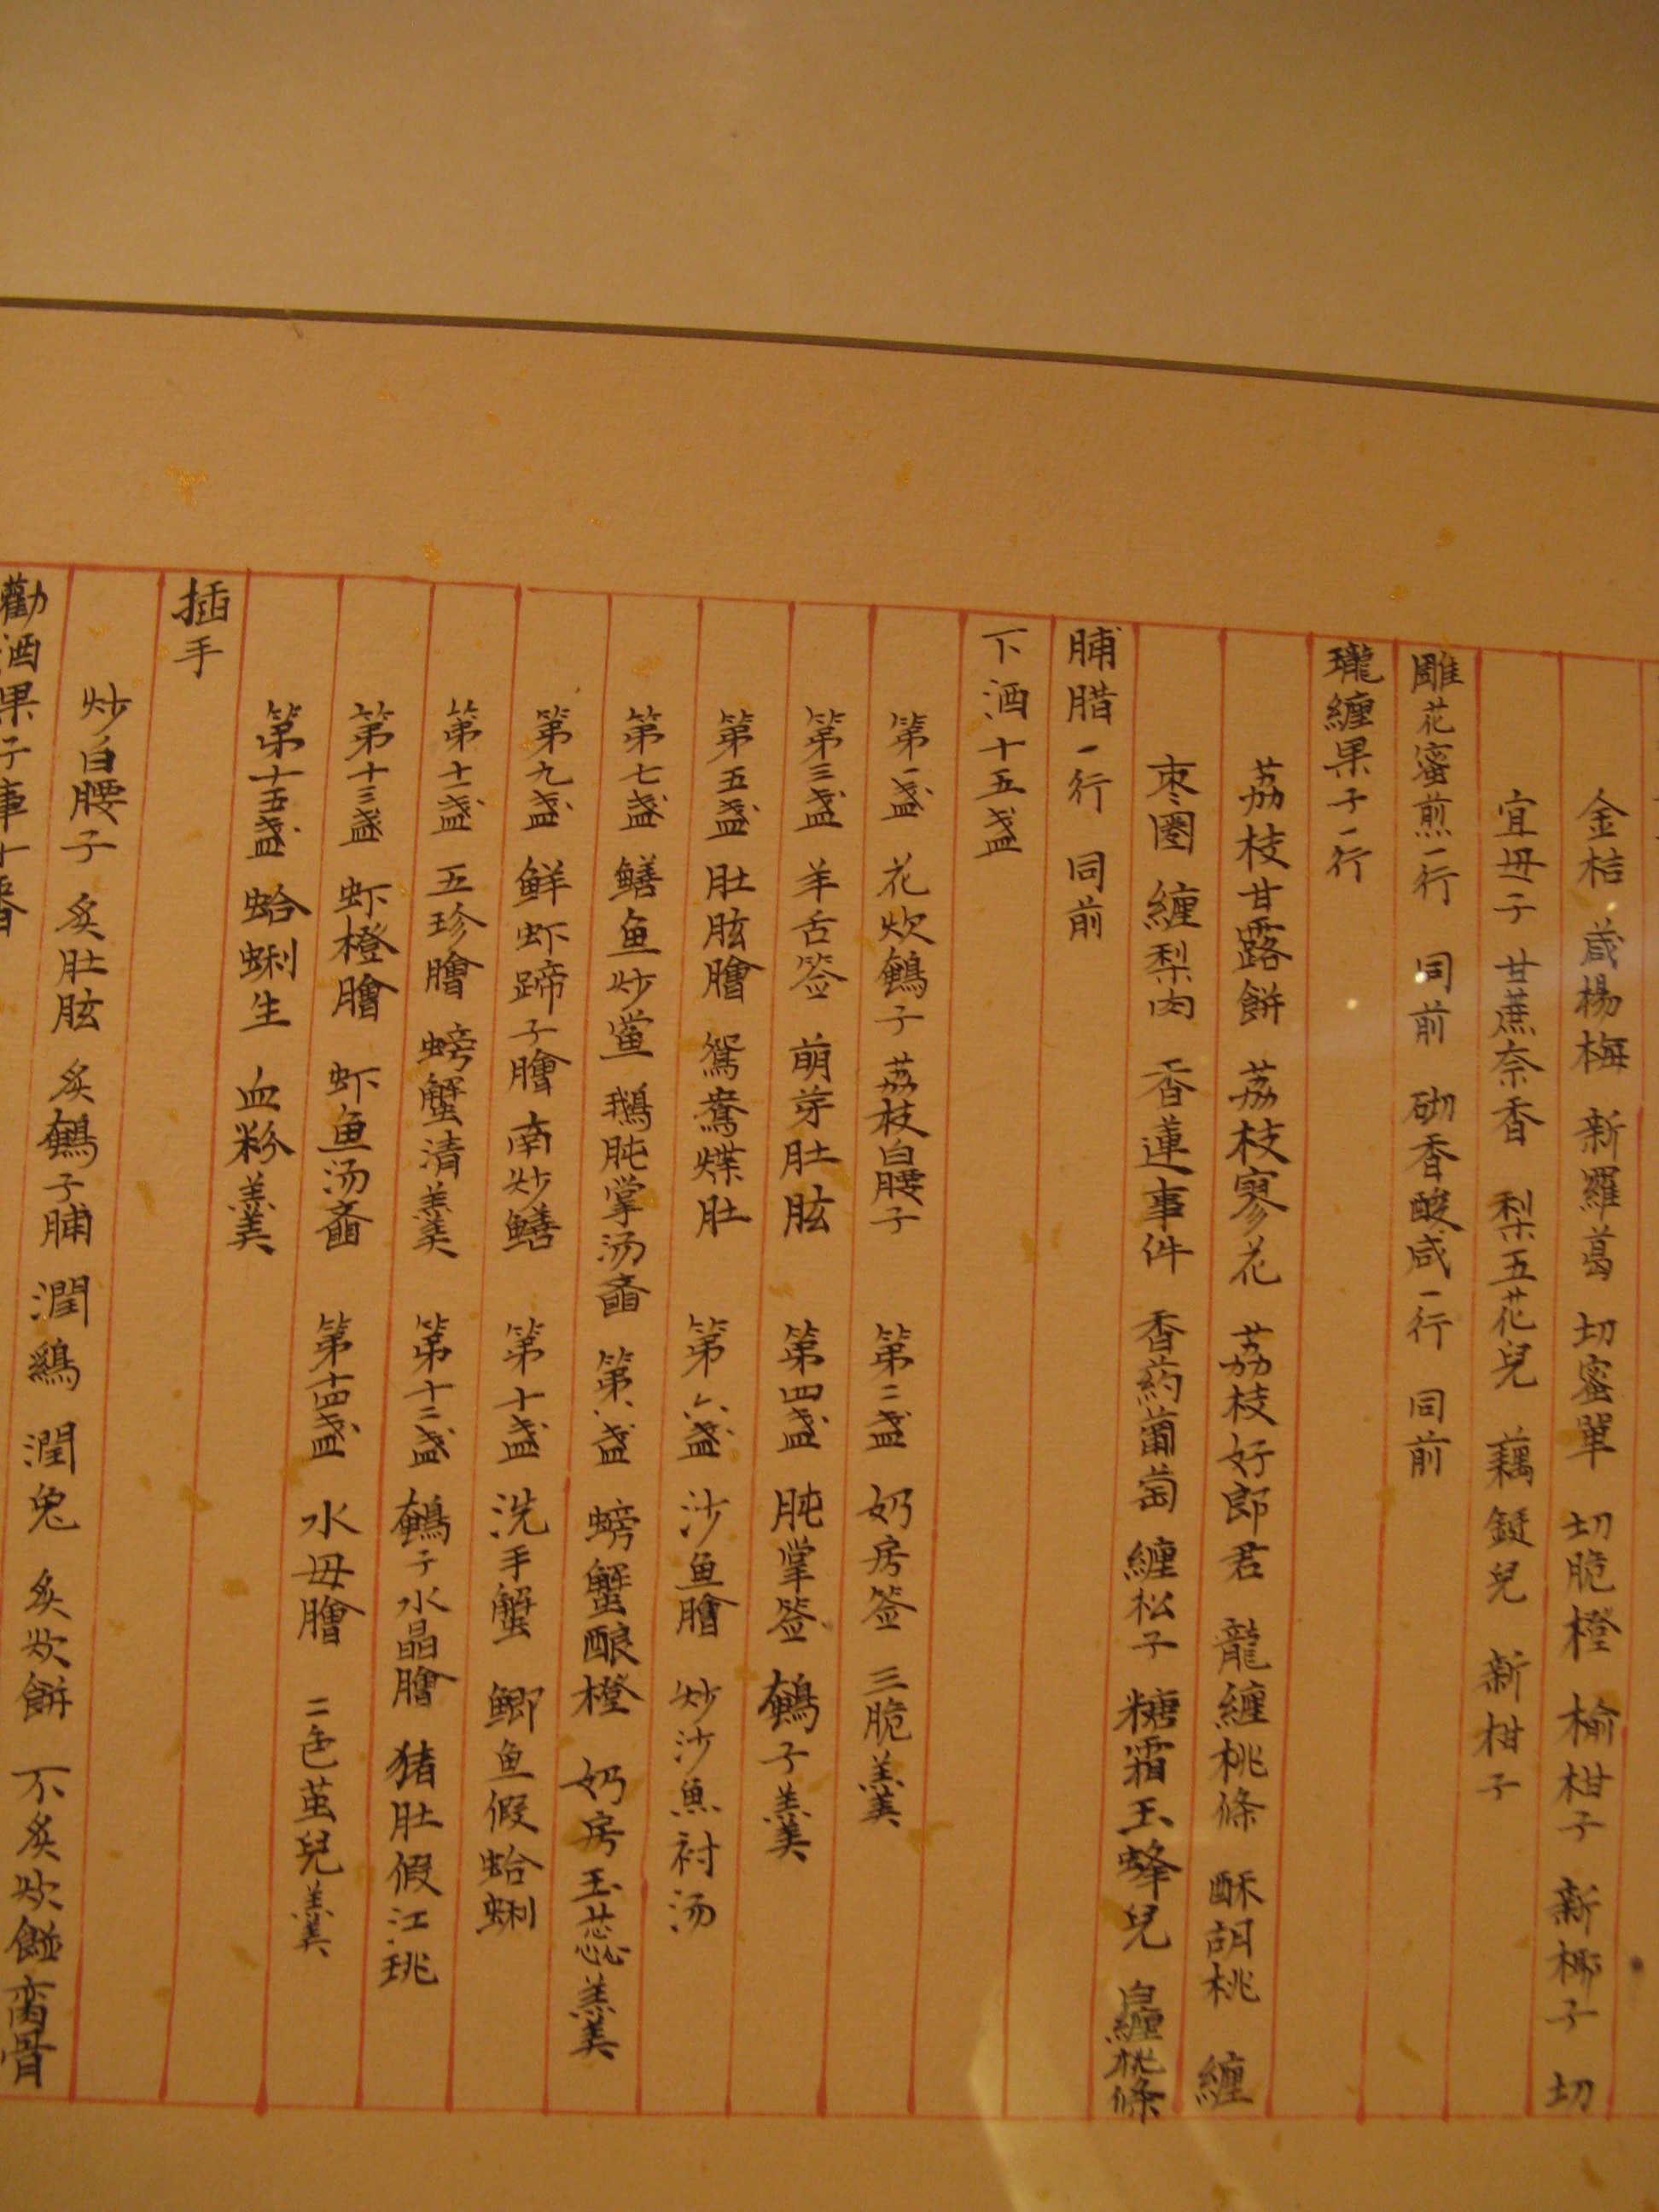 金桔 葴楊梅 新羅葛 切蜜蕈 切脆橙 榆柑子 新椰子 切
宜毋子 甘蔗奈香 梨五花兒 藕鋌兒 新柑子
雕花蜜煎一行 同前 砌香酸咸一行 同前
瓏纏果子一行
荔枝甘露餅 荔枝寥花 荔枝好郎君 龍纏桃條 酥胡桃 纏
枣圈 纏梨肉 香蓮事件 香葯葡萄 纏松子 糖霜玉蜂兒 白纏桃條
脯腊一行 同前
下酒十五盏
第一盏 花炊鵪子 荔枝白腰子 第二盏 奶房签 三脆羹
第三盏 羊舌签 萌芽肚胘 第四盏 肫掌签 鵪子羹
第五盏 肚胘膾 鴛鴦煠肚 第六盏 沙鱼膾 炒沙魚衬汤
第七盏 鳝鱼炒鲎 鵝肫掌汤齑 第八盏 螃蟹酿橙 奶房玉蕊羹
第九盏 鲜虾蹄子膾 南炒鳝 第十盏 洗手蟹 鲫鱼假蛤蜊
第十一盏 五珍膾 螃蟹清羹 第十二盏 鵪子水晶膾 猪肚假江珧
第十三盏 虾橙膾 虾鱼汤齑 第十四盏 水毋膾 二色茧兒羹
第十五盏 蛤蜊生 血粉羹
插手
炒白腰子 炙肚胘 炙鵪子脯 潤鷄 潤兔 炙炊餅 不炙炊餅 脔骨
勸酒果子事十番